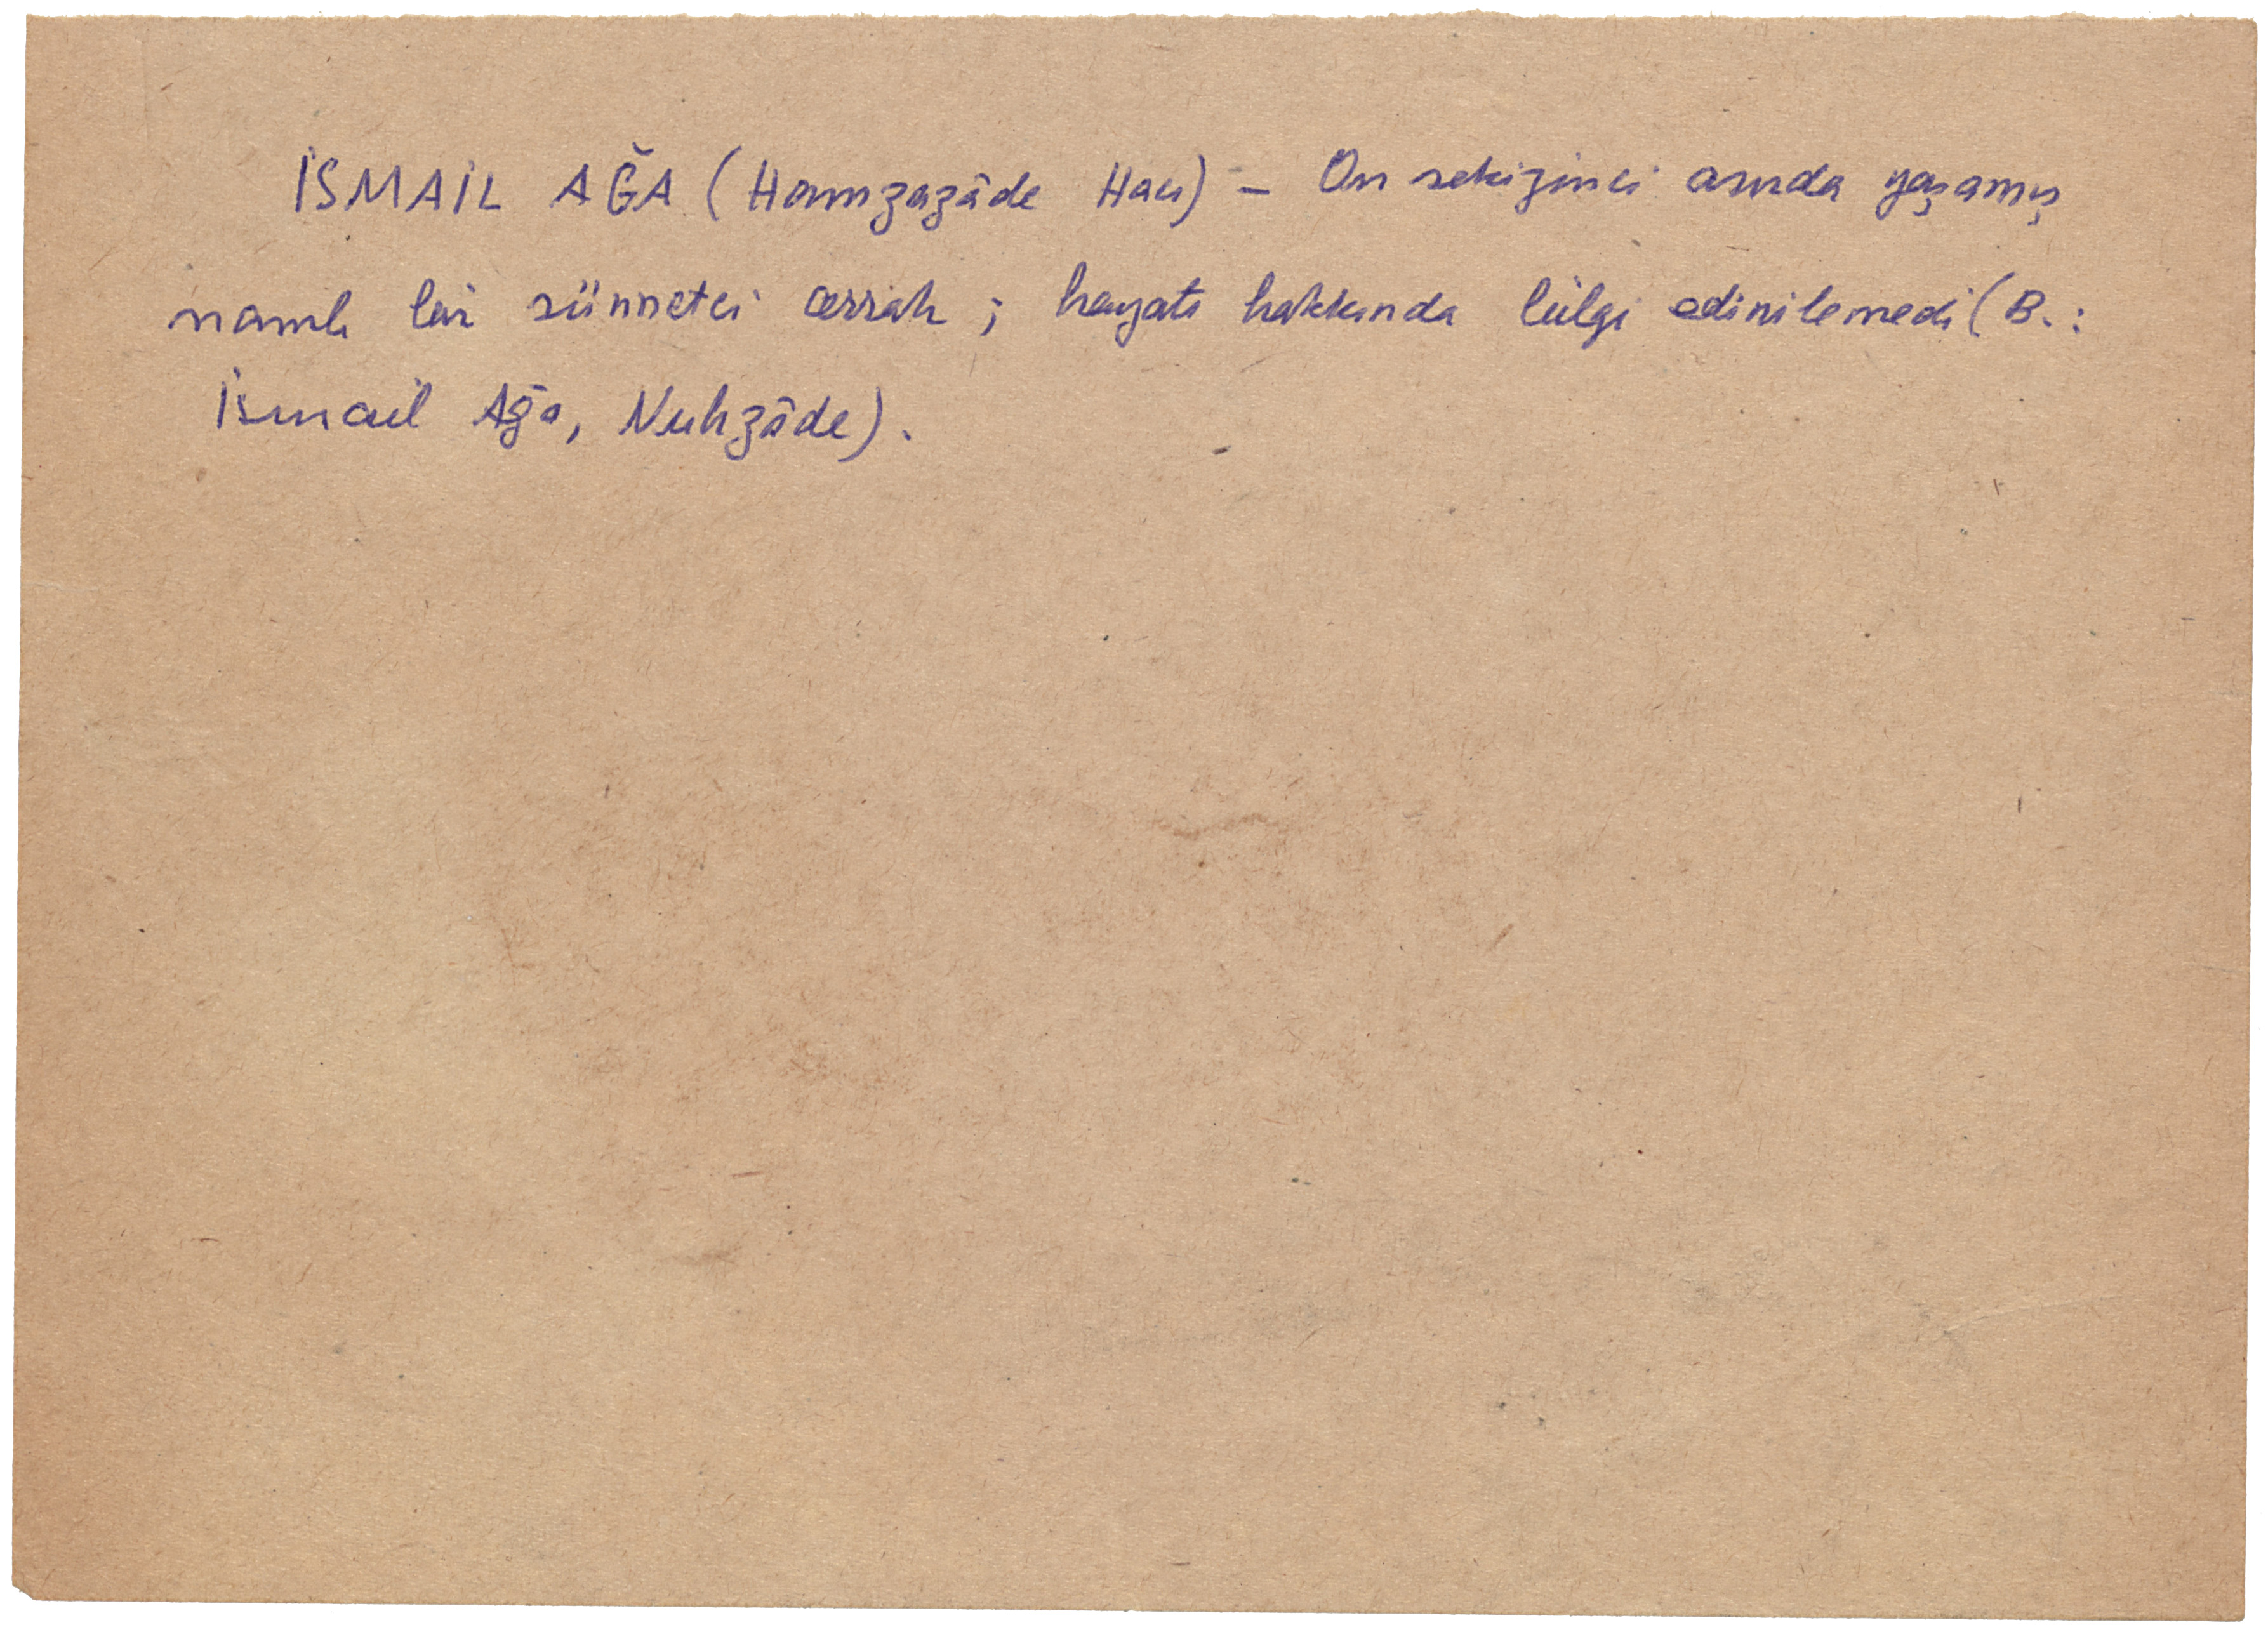 İSMAİL AĞA (Hamzazâde Hacı) – On sekizinci asırda yaşamış
namlı bir sünnetci cerrah ; hayatı hakkında bilgi edinilemedi (B. :
İsmail Ağa, Nuhzâde) .